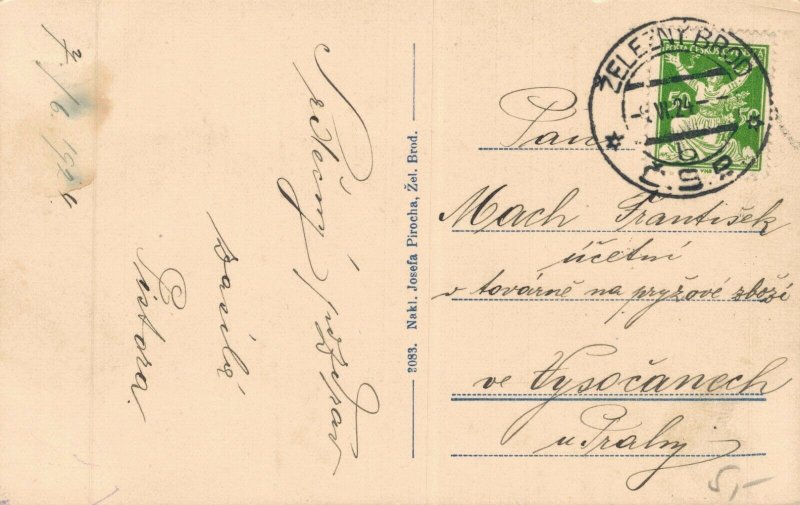 7/6. 1924
Srdečný pozdrav
zasílá
Pistora.
2083. Nakl. Josefa Pirocha, Žel. Brod.
POŠTA ČESKOSLOVENSKÁ
50 50
ŽELEZNÝ BROD
VI.24
6
Č.S.R.
Pan
Mach František
účetní
v továrně na pryžové zboží
ve Vysočanech
u Prahy
5,-